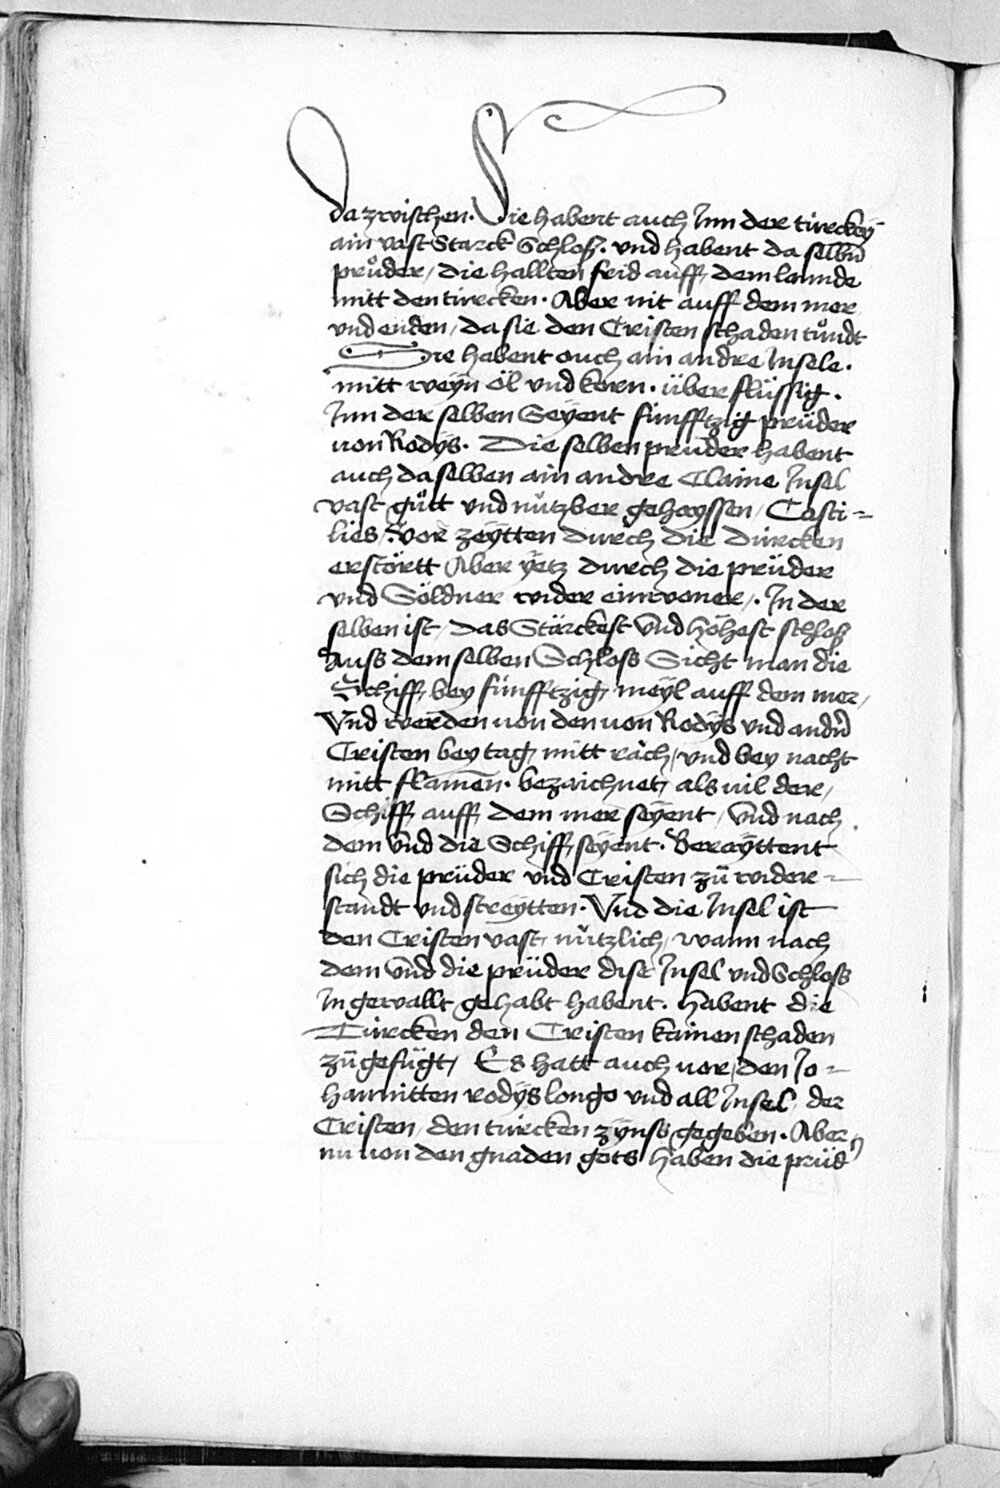 da zwischen. Sie habent auch Jnn der türckeÿ
ain vast Starck Schloß. vnd habent da selbn̄
průder, die hallten frid auff dem lannde
mitt den türcken. Aber nit auff dem mer
vnd enden, da sie den Cristen schaden tůndt
Sie habent ouch ain andre Jnsele.
mitt weÿn öl vnd korn. über flüssig.
Jnn der selben Seÿent fünfftzig prüder
von Rodÿs. Die selben prüder habent
auch da selben ain andre Claine Jnsel
vast gůtt vnd nützber gehayssen, Casti=
lies, Vor zeÿtten durch die dürcken
erstörtt Aber ÿetz durch die prüder
vnd Söldner wider einwoner,. Jn der
selben ist, das Störckest vnd höhest schloß
Auss dem selben Schloss Sicht man die
Schiff, bey fünfftzig, meÿl auff dem mer,
Vnd werden von den von Rodÿs vnd andn̄
Cristen bey tag, mitt räch, vnd bey nacht
mitt flamen̄. bezaichnet, als vil der,
Schiff, auff, dem mer seÿent, vnd nach
dem vnd die Schiff, seÿent. Beraÿttent
sich die prüder vnd Cristen zü wider=
standt vnd streÿtten. Vnd die Jnsel ist
den Cristen vast, nützlich, wann nach
dem vnd die prüder dise Jnsel vnd Schloss
Jn gewallt gehabt habent. habent die
Türcken den Cristen kainen schaden
zügefügt, Es hatt auch vor, den Jo=
hannitten rodÿs longo vnd all Jnsel, der
Cristen, den türcken zÿnss gegeben. Aber
nu von den gnaden gots haben die prüd